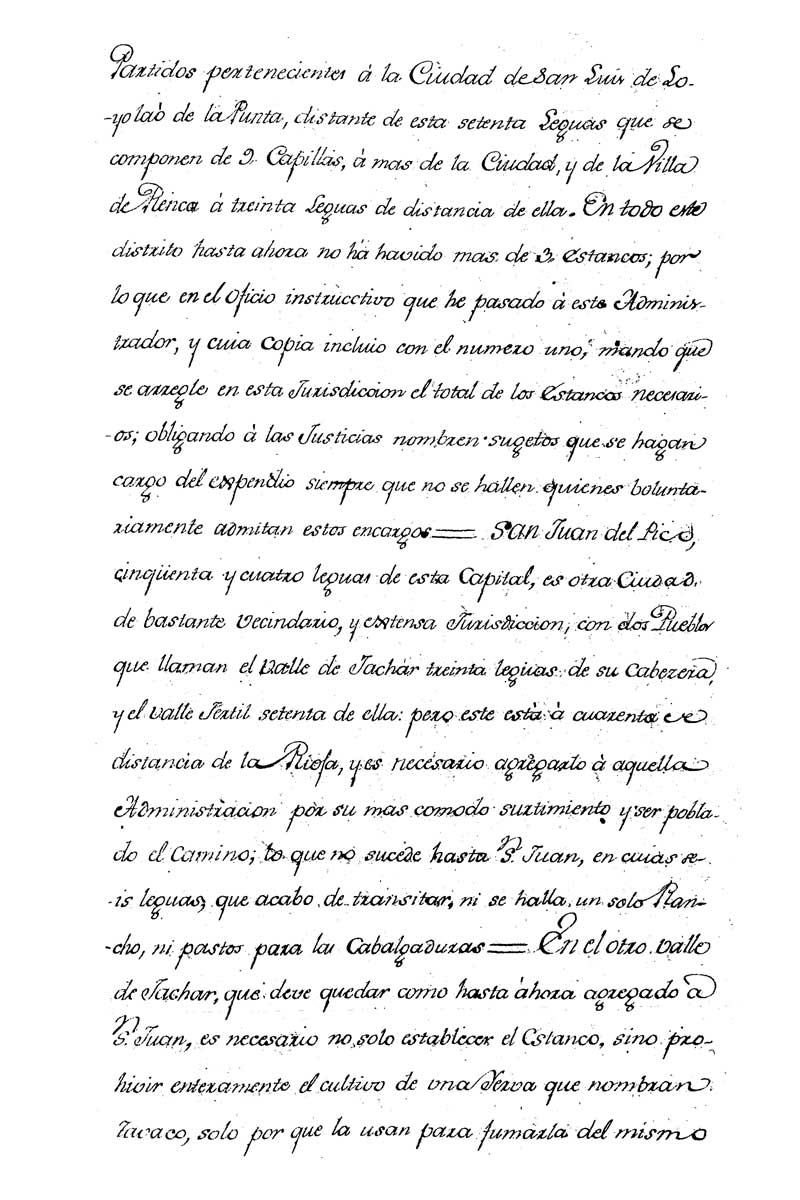 Partidos pertenecientes à la Ciudad de San Luis de Lo-
-yola ò de la Punta, distante de esta setenta Leguas que se
componen de 9. Capillas, à mas de la Ciudad, y de la Villa
de Renca à treinta Leguas de distancia de ella. En todo este
distrito hasta ahora no há havido mas de 3. Estancos; por
lo que en el Oficio instrucctivo que he pasado à este Adminis-
trador, y cuia Copia incluio con el numero uno, mando que
se arregle en esta Jurisdiccion el total de los Estancos necesari-
-os; obligando à las Justicias nombren sugetos que se hagan
cargo del expendio siempre que no se hallen quienes bolunta-
riamente admitan estos encargos == San Juan del Pico,
çinqüenta y cuatro leguas de esta Capital, es otra Ciudad
de bastante Vecindario, y extensa Jurisdiccion, con dos Pueblos
que llaman el Valle de Jachàr treinta leguas de su Cabezera,
y el Valle Fertil setenta de ella: pero este està à cuarenta de
distancia de la Rioja, y es necesario agregarlo à aquella
Administracion pòr su mas comodo surtimiento y ser pobla-
do el Camino; lo que no sucede hasta Sn. Juan, en cuias se-
-is leguas, que acabo de transitar, ni se halla un solo Ran-
-cho, ni pastos para las Cabalgaduras == En el otro valle
de Jachar, que deve quedar como hasta àhora agregado à
Sn. Juan, es necesario no solo establecer el Estanco, sino pro-
hivir enteramente el cultivo de una Yerva que nombran
Tavaco, solo por que la usan para fumarla del mismo